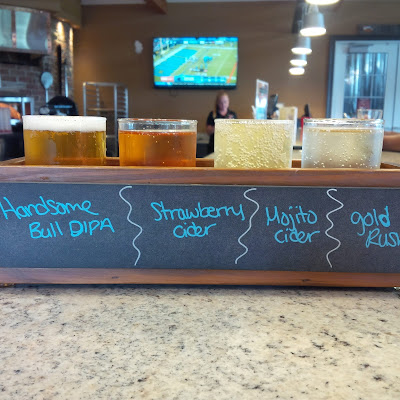 Handsome
Bull DIPA
Strawberry
cider
Mojito
cider
gold
Rush